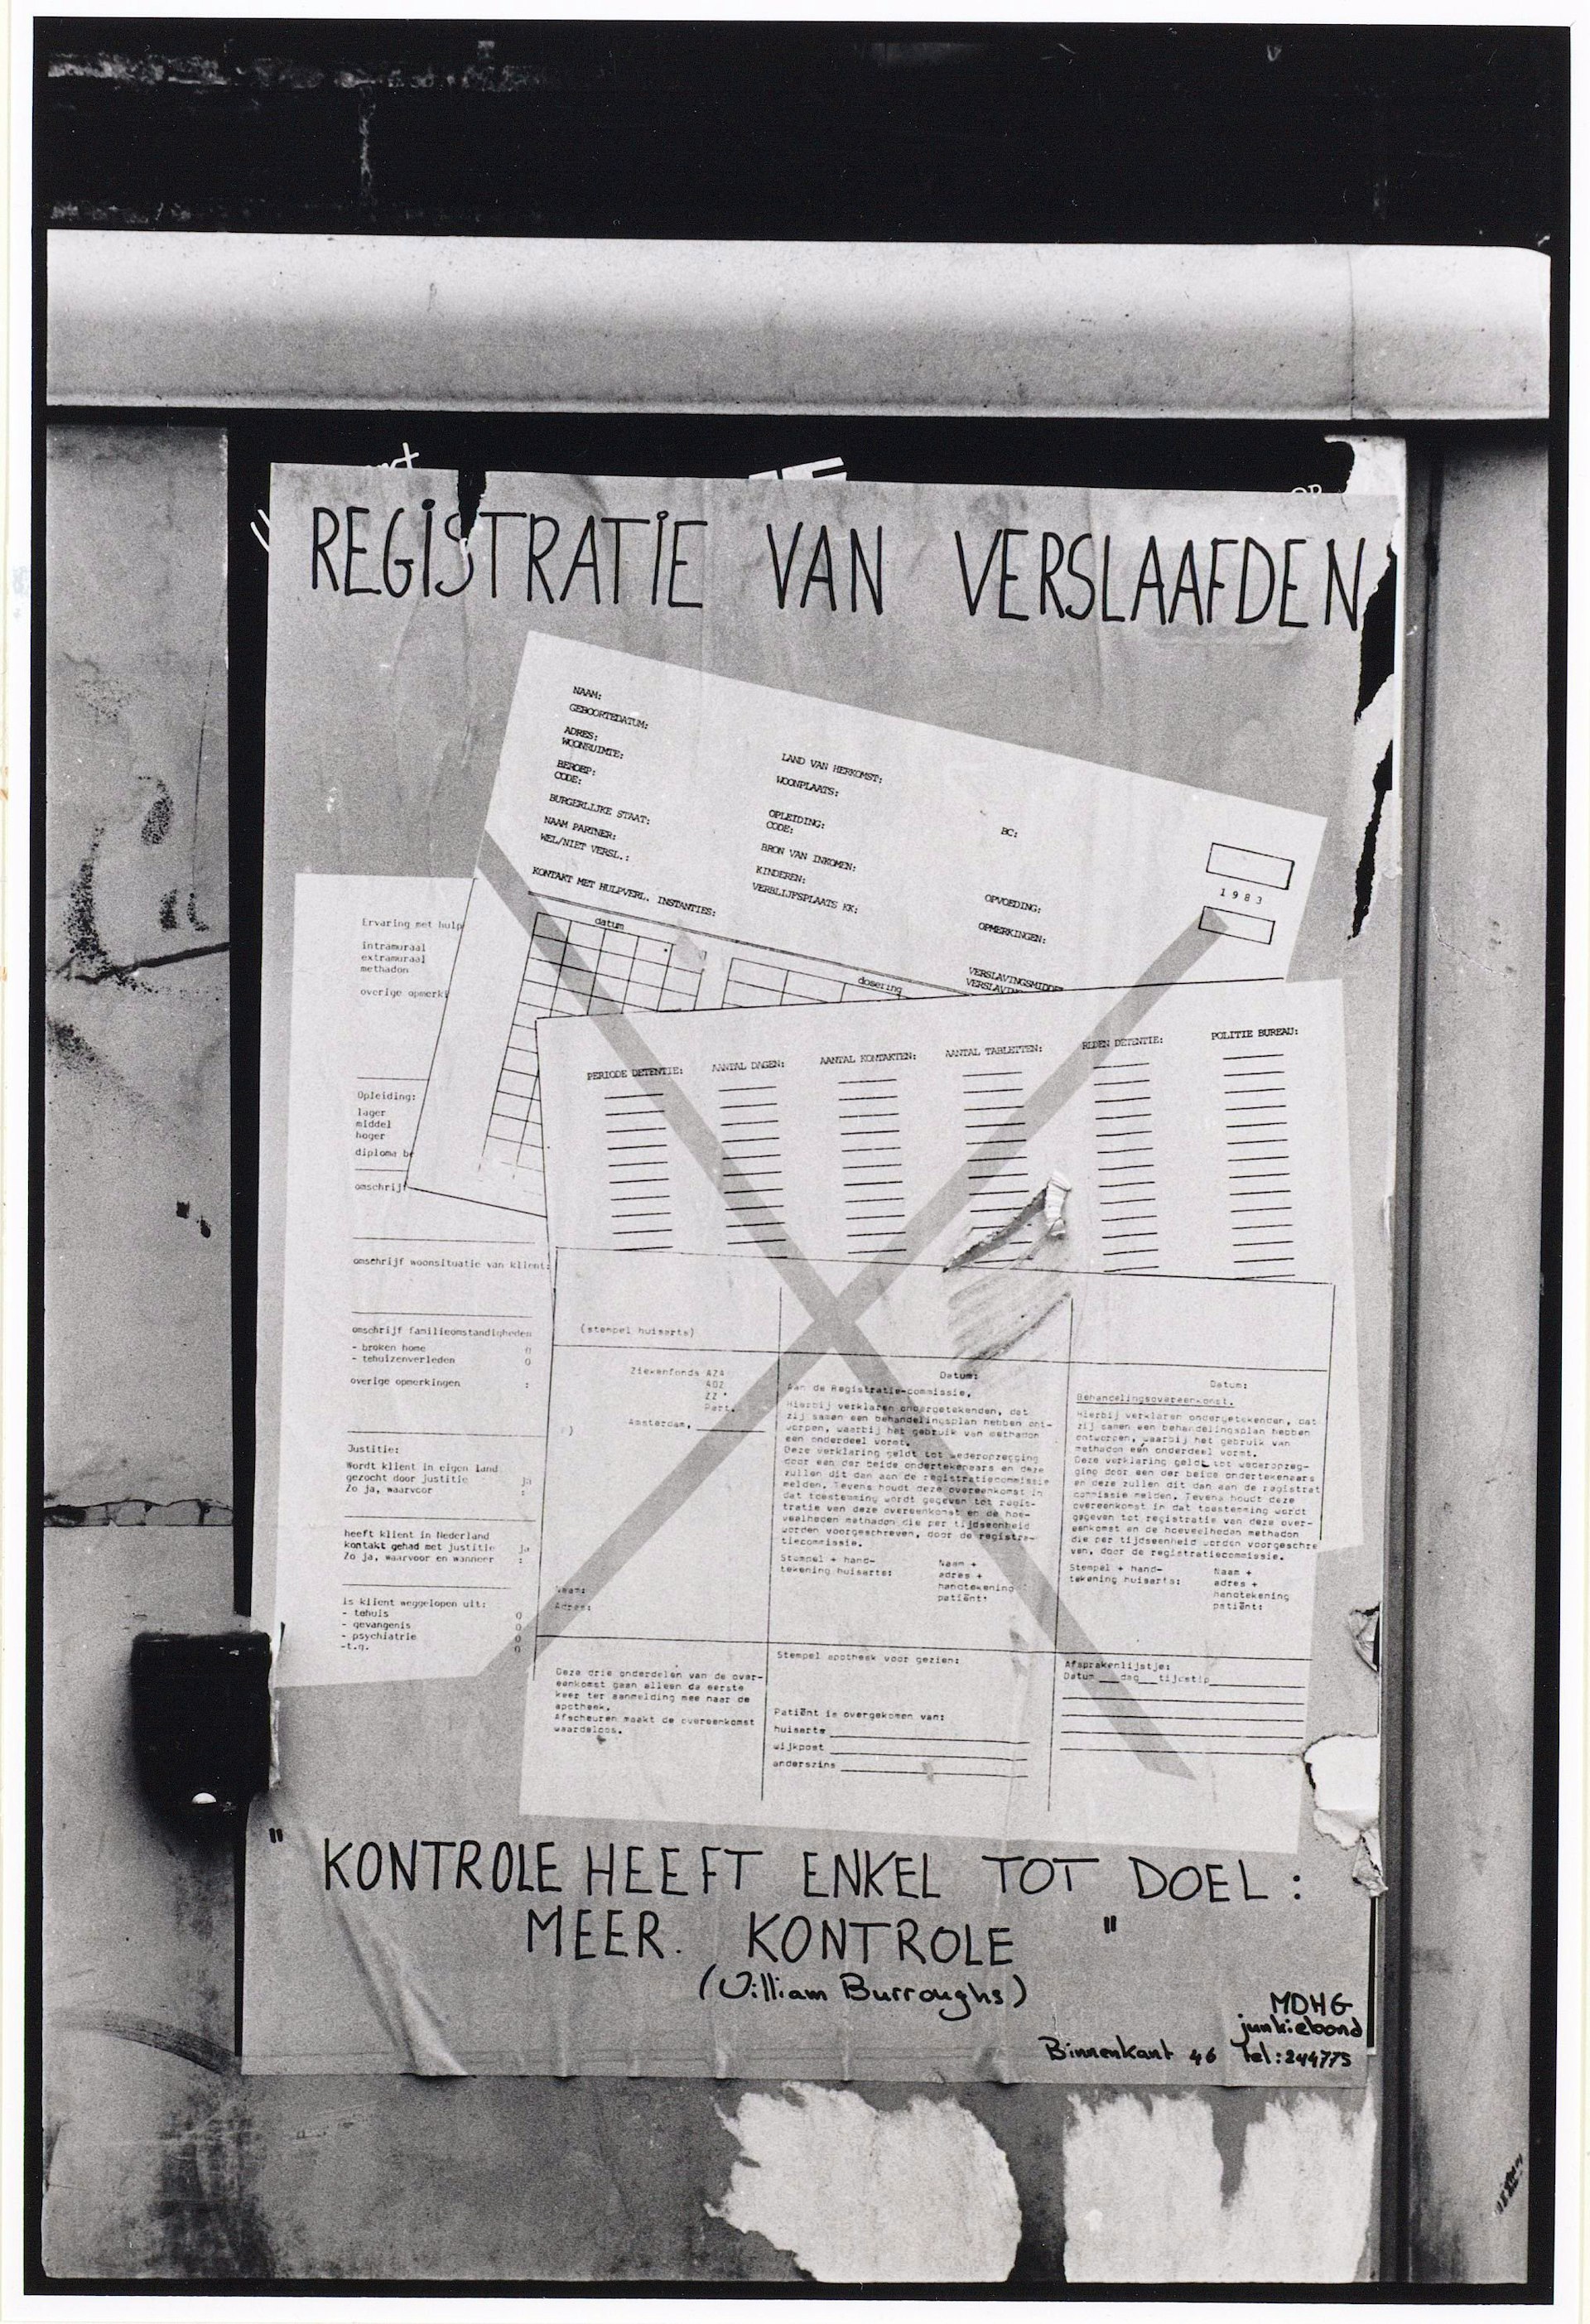 REGISTRATIE VAN VERSLAAFDEN
NAAM:
GEBOORTEDATUM:
ADRES:
WOONRUIMTE:
BEROEP:
CODE:
BURGERLIJKE STAAT:
NAAM PARTNER:
WEL/NIET VERSL.:
KONTAKT MET HULPVERL. INSTANTIES:
LAND VAN HERKOMST:
WOONPLAATS:
OPLEIDING:
CODE:
BRON VAN INKOMEN:
KINDEREN:
VERBLIJFSPLAATS KK:
BC:
OPVOEDING:
OPMERKINGEN:
VERSLAVINGSMIDDE
VERSLAVIN
1983
datum
dosering
Ervaring met hulp
intramuraal
extramuraal
methadon
overige opmerki
Opleiding:
lager
middel
hoger
diploma be
omschrijf
omschrijf woonsituatie van klient:
omschrijf familieomstandigheden
- broken home 0
- tehuizenverleden 0
overige opmerkingen :
Justitie:
Wordt klient in eigen land
gezocht door justitie ja
Zo ja, waarvoor :
heeft klient in Nederland
kontakt gehad met justitie ja
Zo ja, waarvoor en wanneer :
is klient weggelopen uit:
- tehuis 0
- gevangenis 0
- psychiatrie 0
-t.g. 0
PERIODE DETENTIE: AANTAL DAGEN: AANTAL KONTAKTEN: AANTAL TABLETTEN: REDEN DETENTIE: POLITIE BUREAU:
(stempel huisarts)
Ziekenfonds AZA
AOZ
ZZ
Part.
Amsterdam,
Naam:
Adres:
Datum:
Aan de Registratie-commissie.
Hierbij verklaren ondergetekenden, dat
zij samen een behandelingsplan hebben ont-
worpen, waarbij het gebruik van methadon
een onderdeel vormt.
Deze verklaring geldt tot wederopzegging
door een der beide ondertekenaars en deze
zullen dit dan aan de registratiecommissie
melden. Tevens houdt deze overeenkomst in
dat toestemming wordt gegeven tot regis-
tratie van deze overeenkomst en de hoe-
veelheden methadon die per tijdseenheid
worden voorgeschreven, door de registra-
tiecommissie.
Stempel + hand-
tekening huisarts:
Naam +
adres +
handtekening
patiënt:
Datum:
Behandelingsovereenkomst.
Hierbij verklaren ondergetekenden, dat
zij samen een behandelingsplan hebben
ontworpen, waarbij het gebruik van
methadon een onderdeel vormt.
Deze verklaring geldt tot wederopzeg-
ging door een der beide ondertekenaars
en deze zullen dit dan aan de registrat
commissie melden. Tevens houdt deze
overeenkomst in dat toestemming wordt
gegeven tot registratie van deze over-
eenkomst en de hoeveelheden methadon
die per tijdseenheid worden voorgeschre
ven, door de registratiecommissie.
Stempel + hand-
tekening huisarts:
Naam +
adres +
handtekening
patiënt:
Deze drie onderdelen van de over-
eenkomst gaan alleen de eerste
keer ter aanmelding mee naar de
apotheek.
Afscheuren maakt de overeenkomst
waardeloos.
Stempel apotheek voor gezien:
Patiënt is overgekomen van:
huisarts
wijkpost
anderszins
Afsprakenlijstje:
Datum dag tijdstip
" KONTROLE HEEFT ENKEL TOT DOEL :
MEER. KONTROLE "
(William Burroughs)
MDHG
junkiebond
Binnenkant 46 Tel:244775